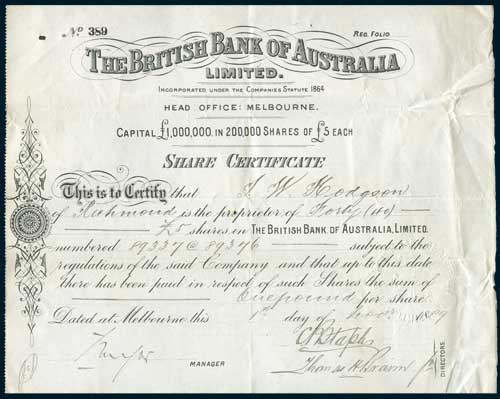 No 389
REG. FOLIO
THE BRITISH BANK OF AUSTRALIA
LIMITED.
INCORPORATED UNDER THE COMPANIES STATUTE 1864
HEAD OFFICE: MELBOURNE.
CAPITAL £1,000,000, IN 200,000 SHARES OF £5 EACH
SHARE CERTIFICATE
This is to Certify that W. Hodgson
of Richmond is the proprietor of Forty (40)
£5 shares in THE BRITISH BANK OF AUSTRALIA, LIMITED.
numbered 89337 @ 89376 subject to the
regulations of the said Company and that up to this date
there has been paid in respect of such Shares the sum of
One pound per share.
Dated at Melbourne this 1st day of Novr 1889
Staples
Thomas
MANAGER
DIRECTORS